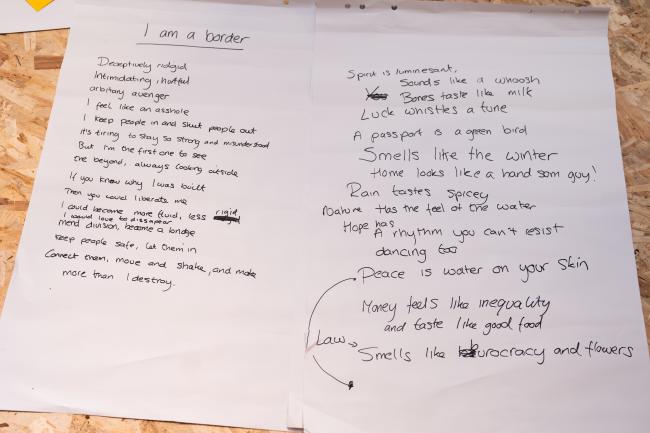 I am a border
Deceptively ridgid
Intimidating, hurtful
arbitary avenger
I feel like an asshole
I keep people in and shut people out
it's tiring to stay so strong and misunderstood
But I'm the first one to see
the beyond, always looking outside
If you knew why I was built
Then you could liberate me
I could become more fluid, less rigid
I would love to dissapear
mend division, become a bridge
keep people safe, let them in
Connect them, move and shake, and make
more than I destroy.
Spirit is luminesant,
Sounds like a whoosh
Bones taste like milk
Luck whistles a tune
A passport is a green bird
Smells like the winter
Home looks like a hand som guy!
Rain tastes spicey
Nature Has the feel of the water
Hope has
A rhythm you can't resist
dancing too
Peace is water on your skin
Money feels like inequality
and taste like good food
Law →
Smells like burocracy and flowers